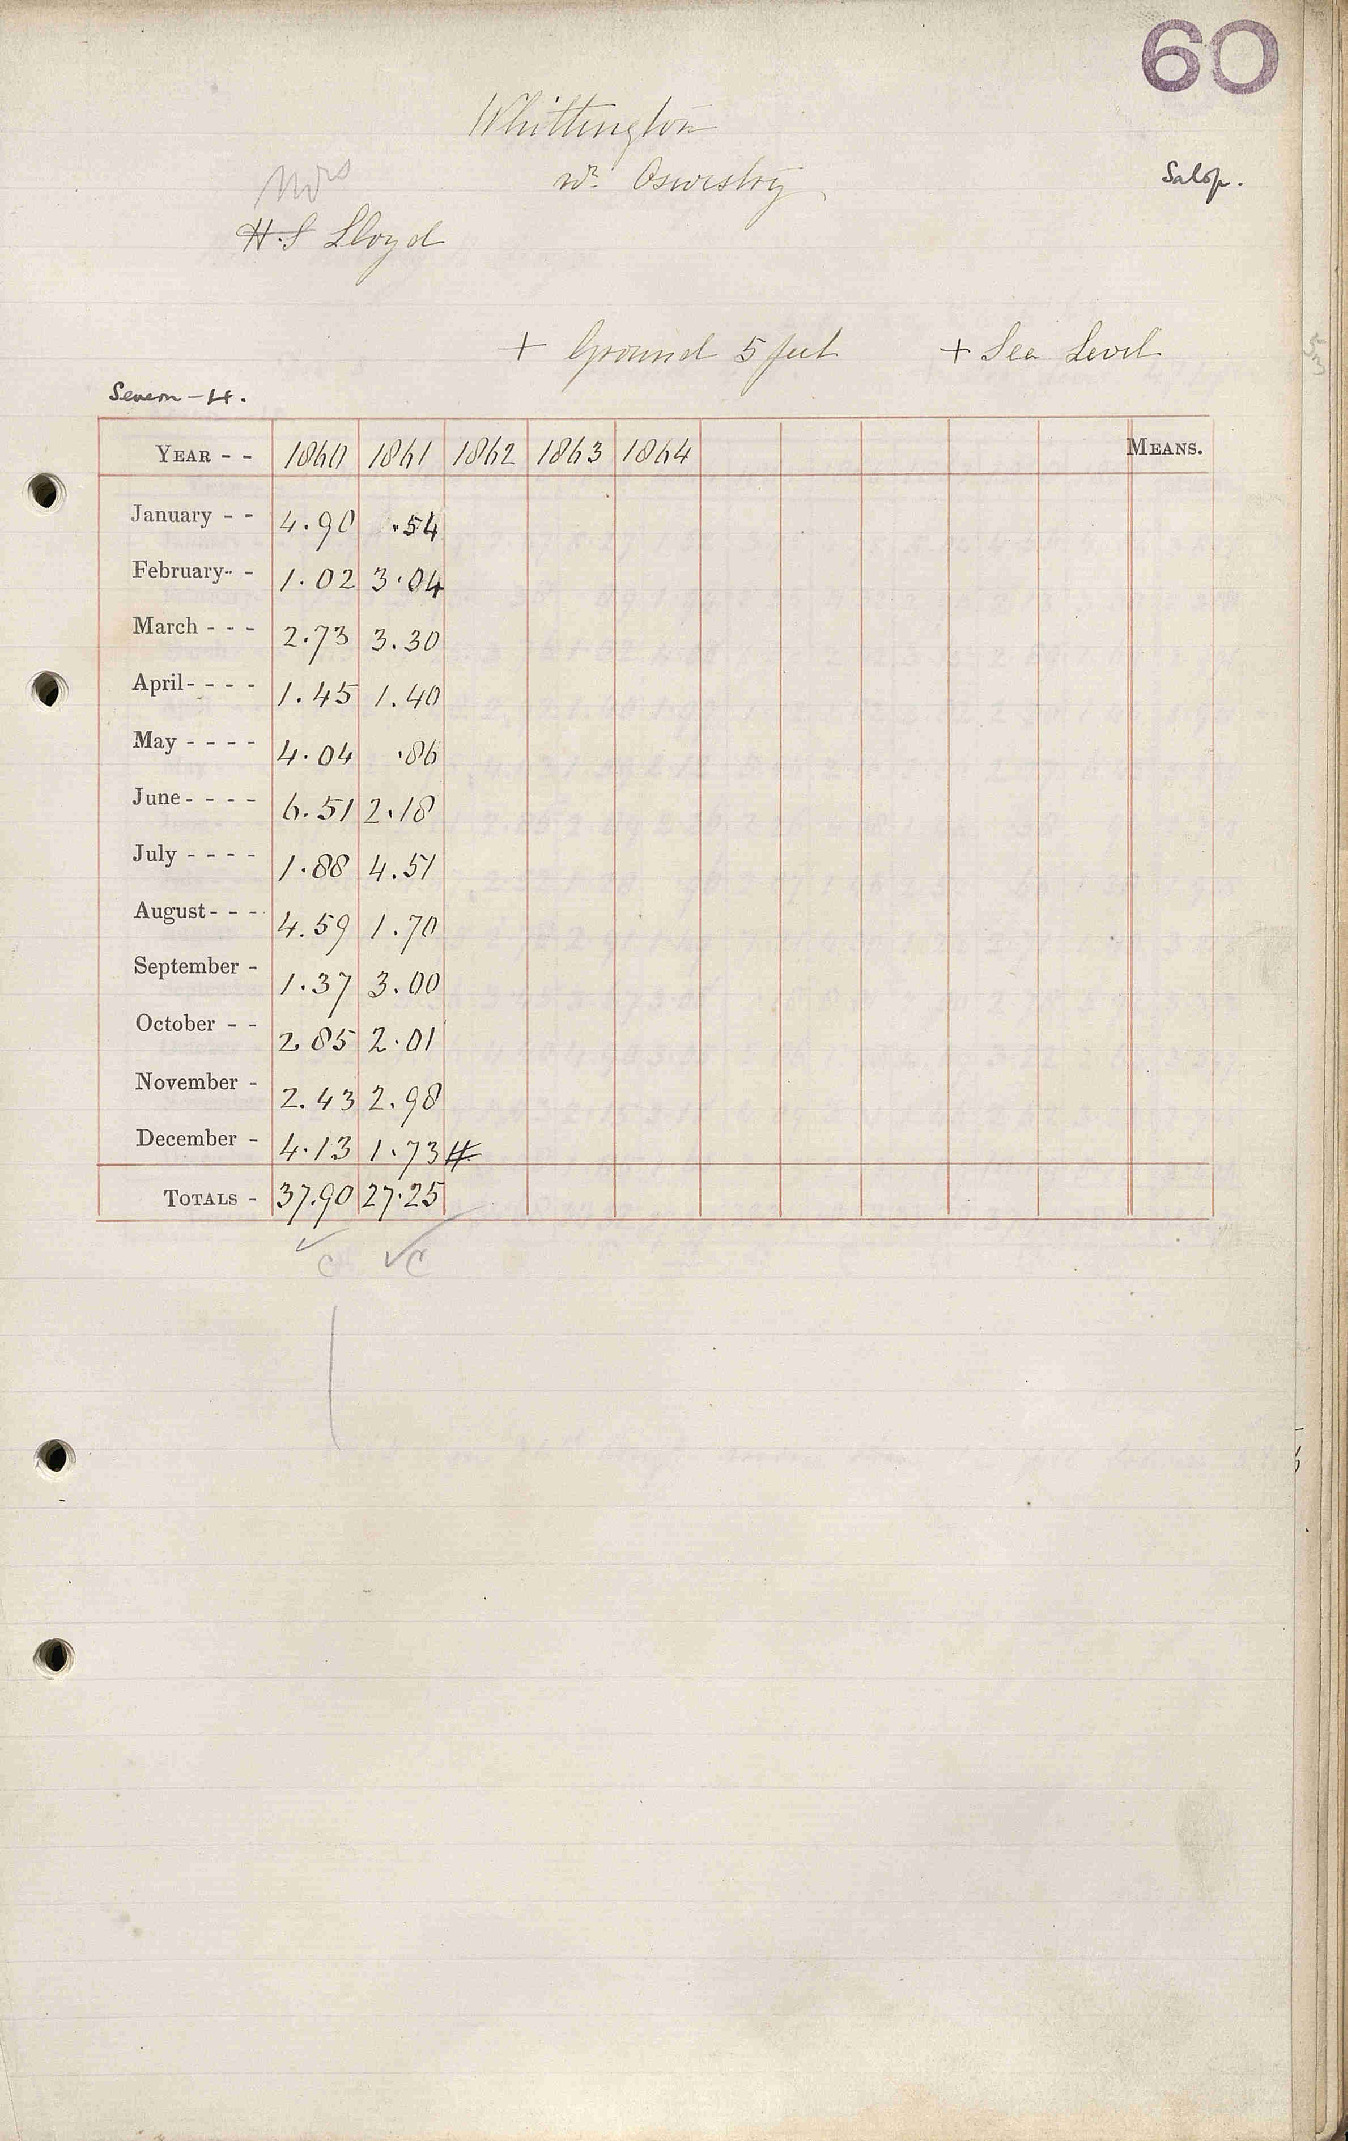 60
Whittington
nr. Oswestry
Salop.
Mrs
H.S Lloyd
+ Ground 5 feet + Sea Level
Severn - 4.
YEAR - - 1860 1861 1862 1863 1864 MEANS.
January - - 4.90 .54
February - - 1.02 3.04
March - - - 2.73 3.30
April - - - - 1.45 1.40
May - - - - 4.04 .86
June - - - - 6.51 2.18
July - - - - 1.88 4.51
August - - - 4.59 1.70
September - 1.37 3.00
October - - 2.85 2.01
November - 2.43 2.98
December - 4.13 1.73 #
TOTALS - 37.90 27.25
✓ C ✓ C